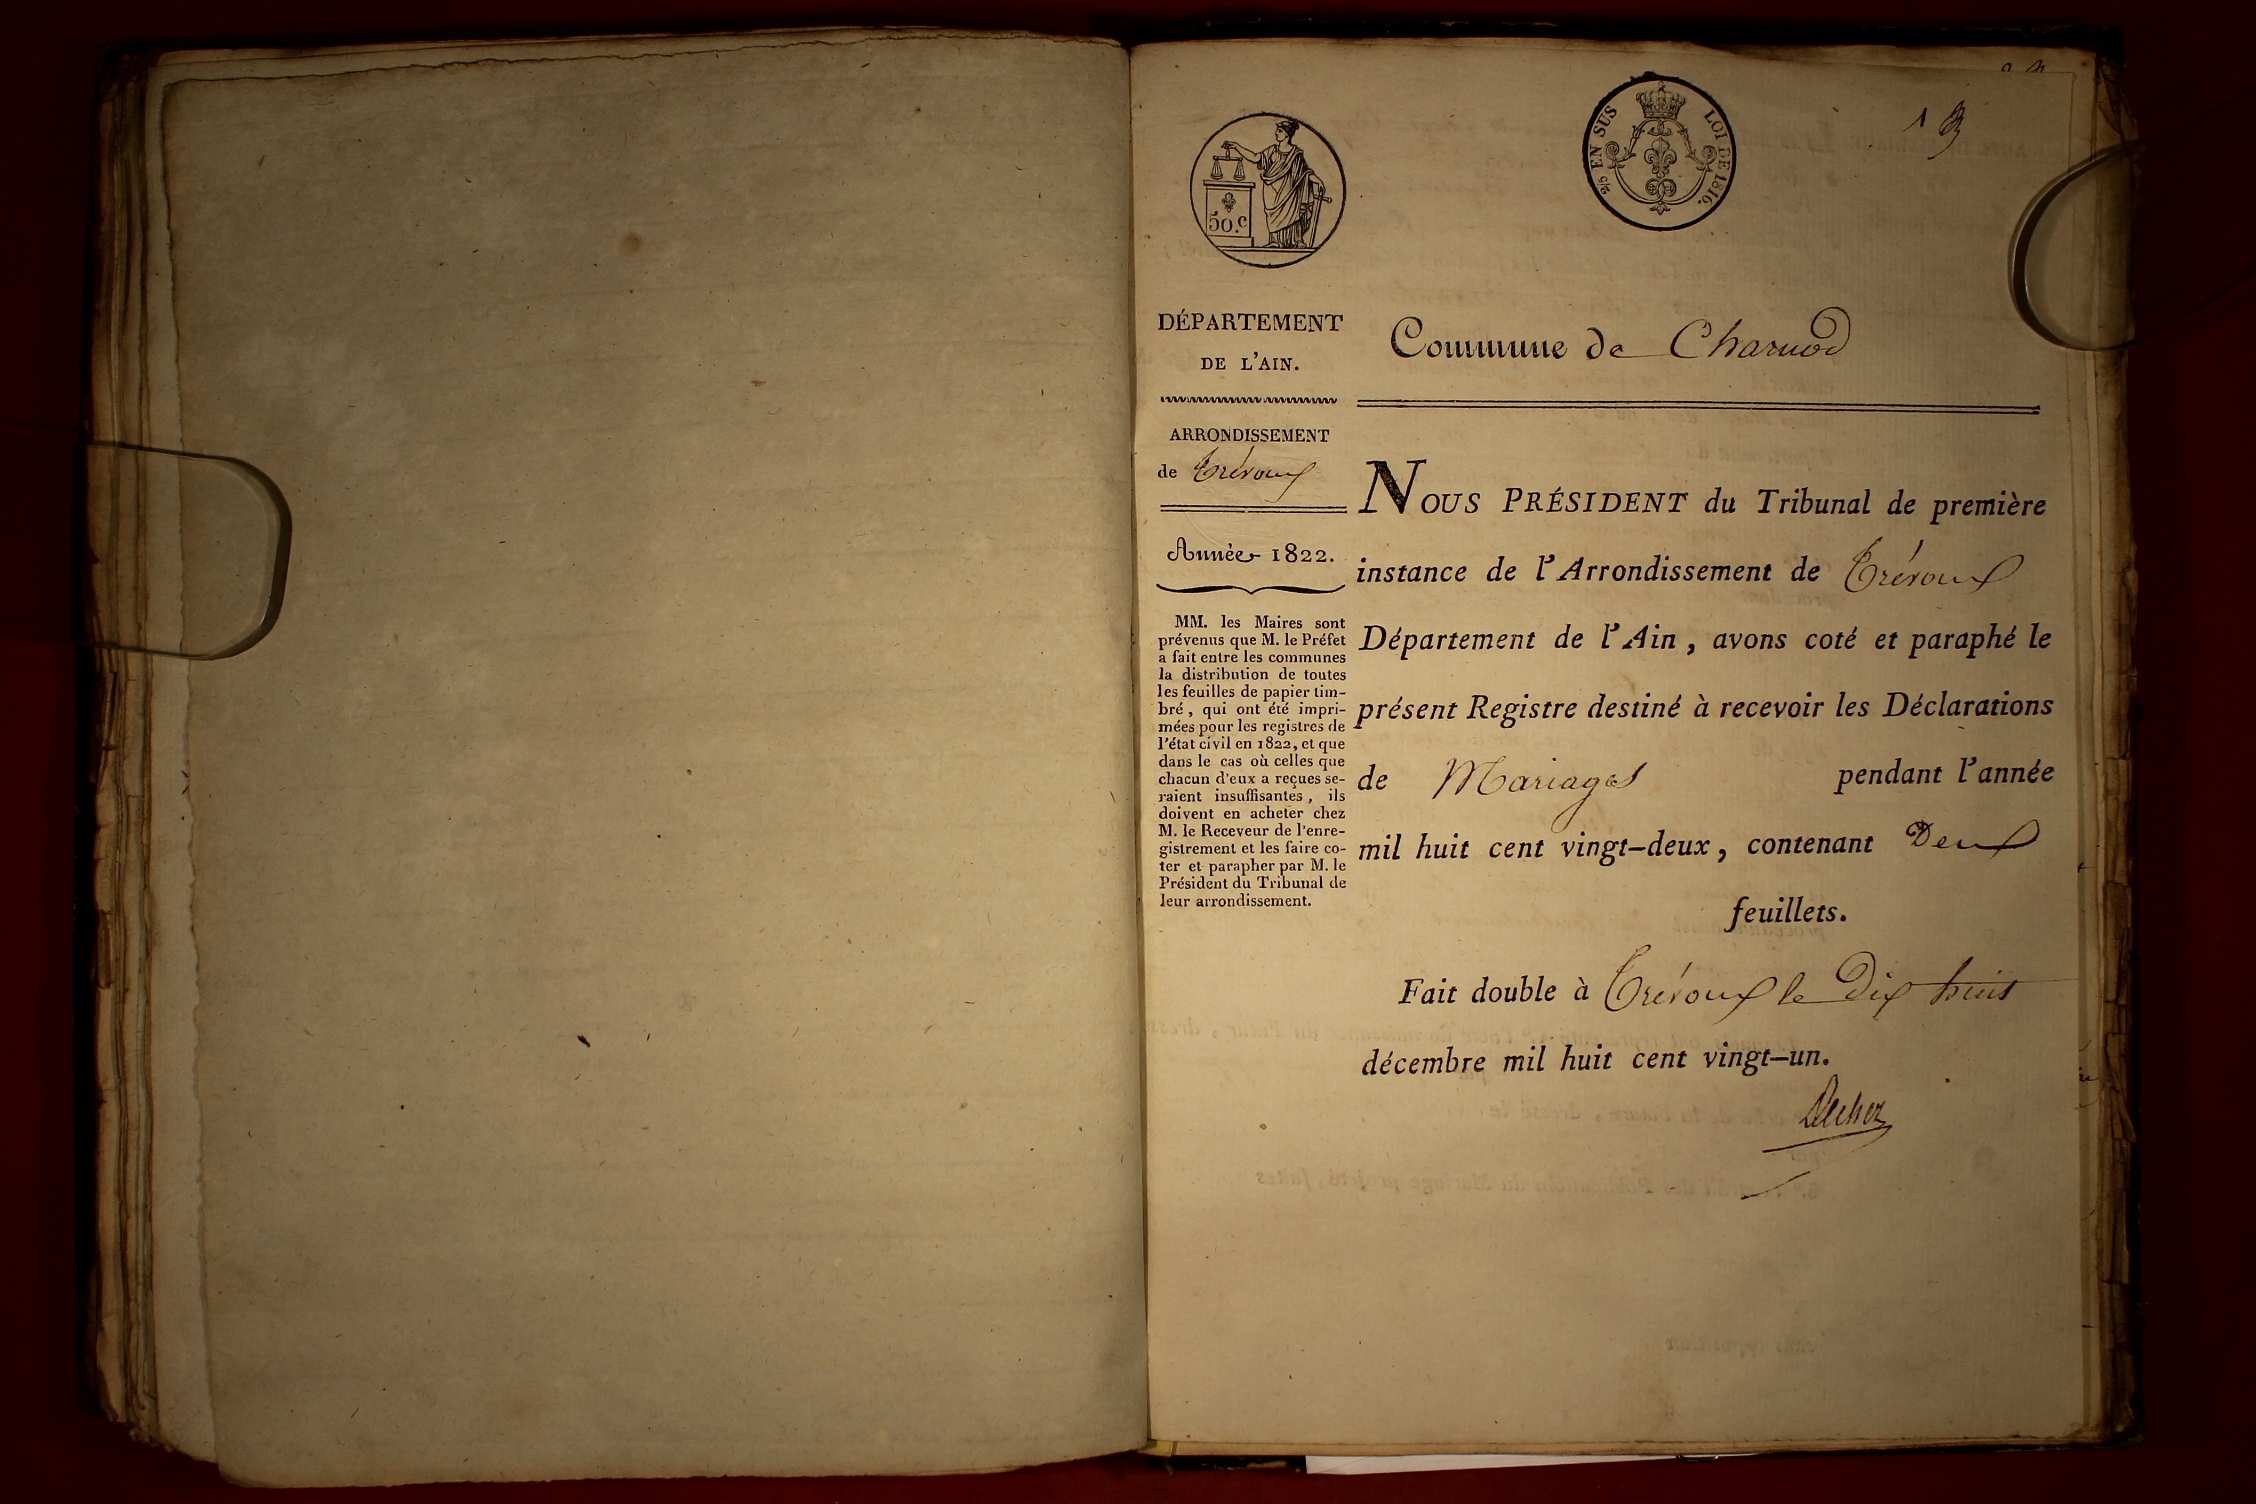 50.c
2/5 EN SUS
LOI DE 1816.
1
DÉPARTEMENT
DE L'AIN.
ARRONDISSEMENT
de Trévoux
Année 1822.
MM. les Maires sont
prévenus que M. le Préfet
a fait entre les communes
la distribution de toutes
les feuilles de papier tim-
bré, qui ont été impri-
mées pour les registres de
l'état civil en 1822, et que
dans le cas où celles que
chacun d'eux a reçues se-
raient insuffisantes, ils
doivent en acheter chez
M. le Receveur de l'enre-
gistrement et les faire co-
ter et parapher par M. le
Président du Tribunal de
leur arrondissement.
Commune de Charnod
NOUS PRÉSIDENT du Tribunal de première
instance de l'Arrondissement de Trévoux
Département de l'Ain, avons coté et paraphé le
présent Registre destiné à recevoir les Déclarations
de Mariages pendant l'année
mil huit cent vingt-deux, contenant Deux
feuillets.
Fait double à Trévoux le Dix huit
décembre mil huit cent vingt-un.